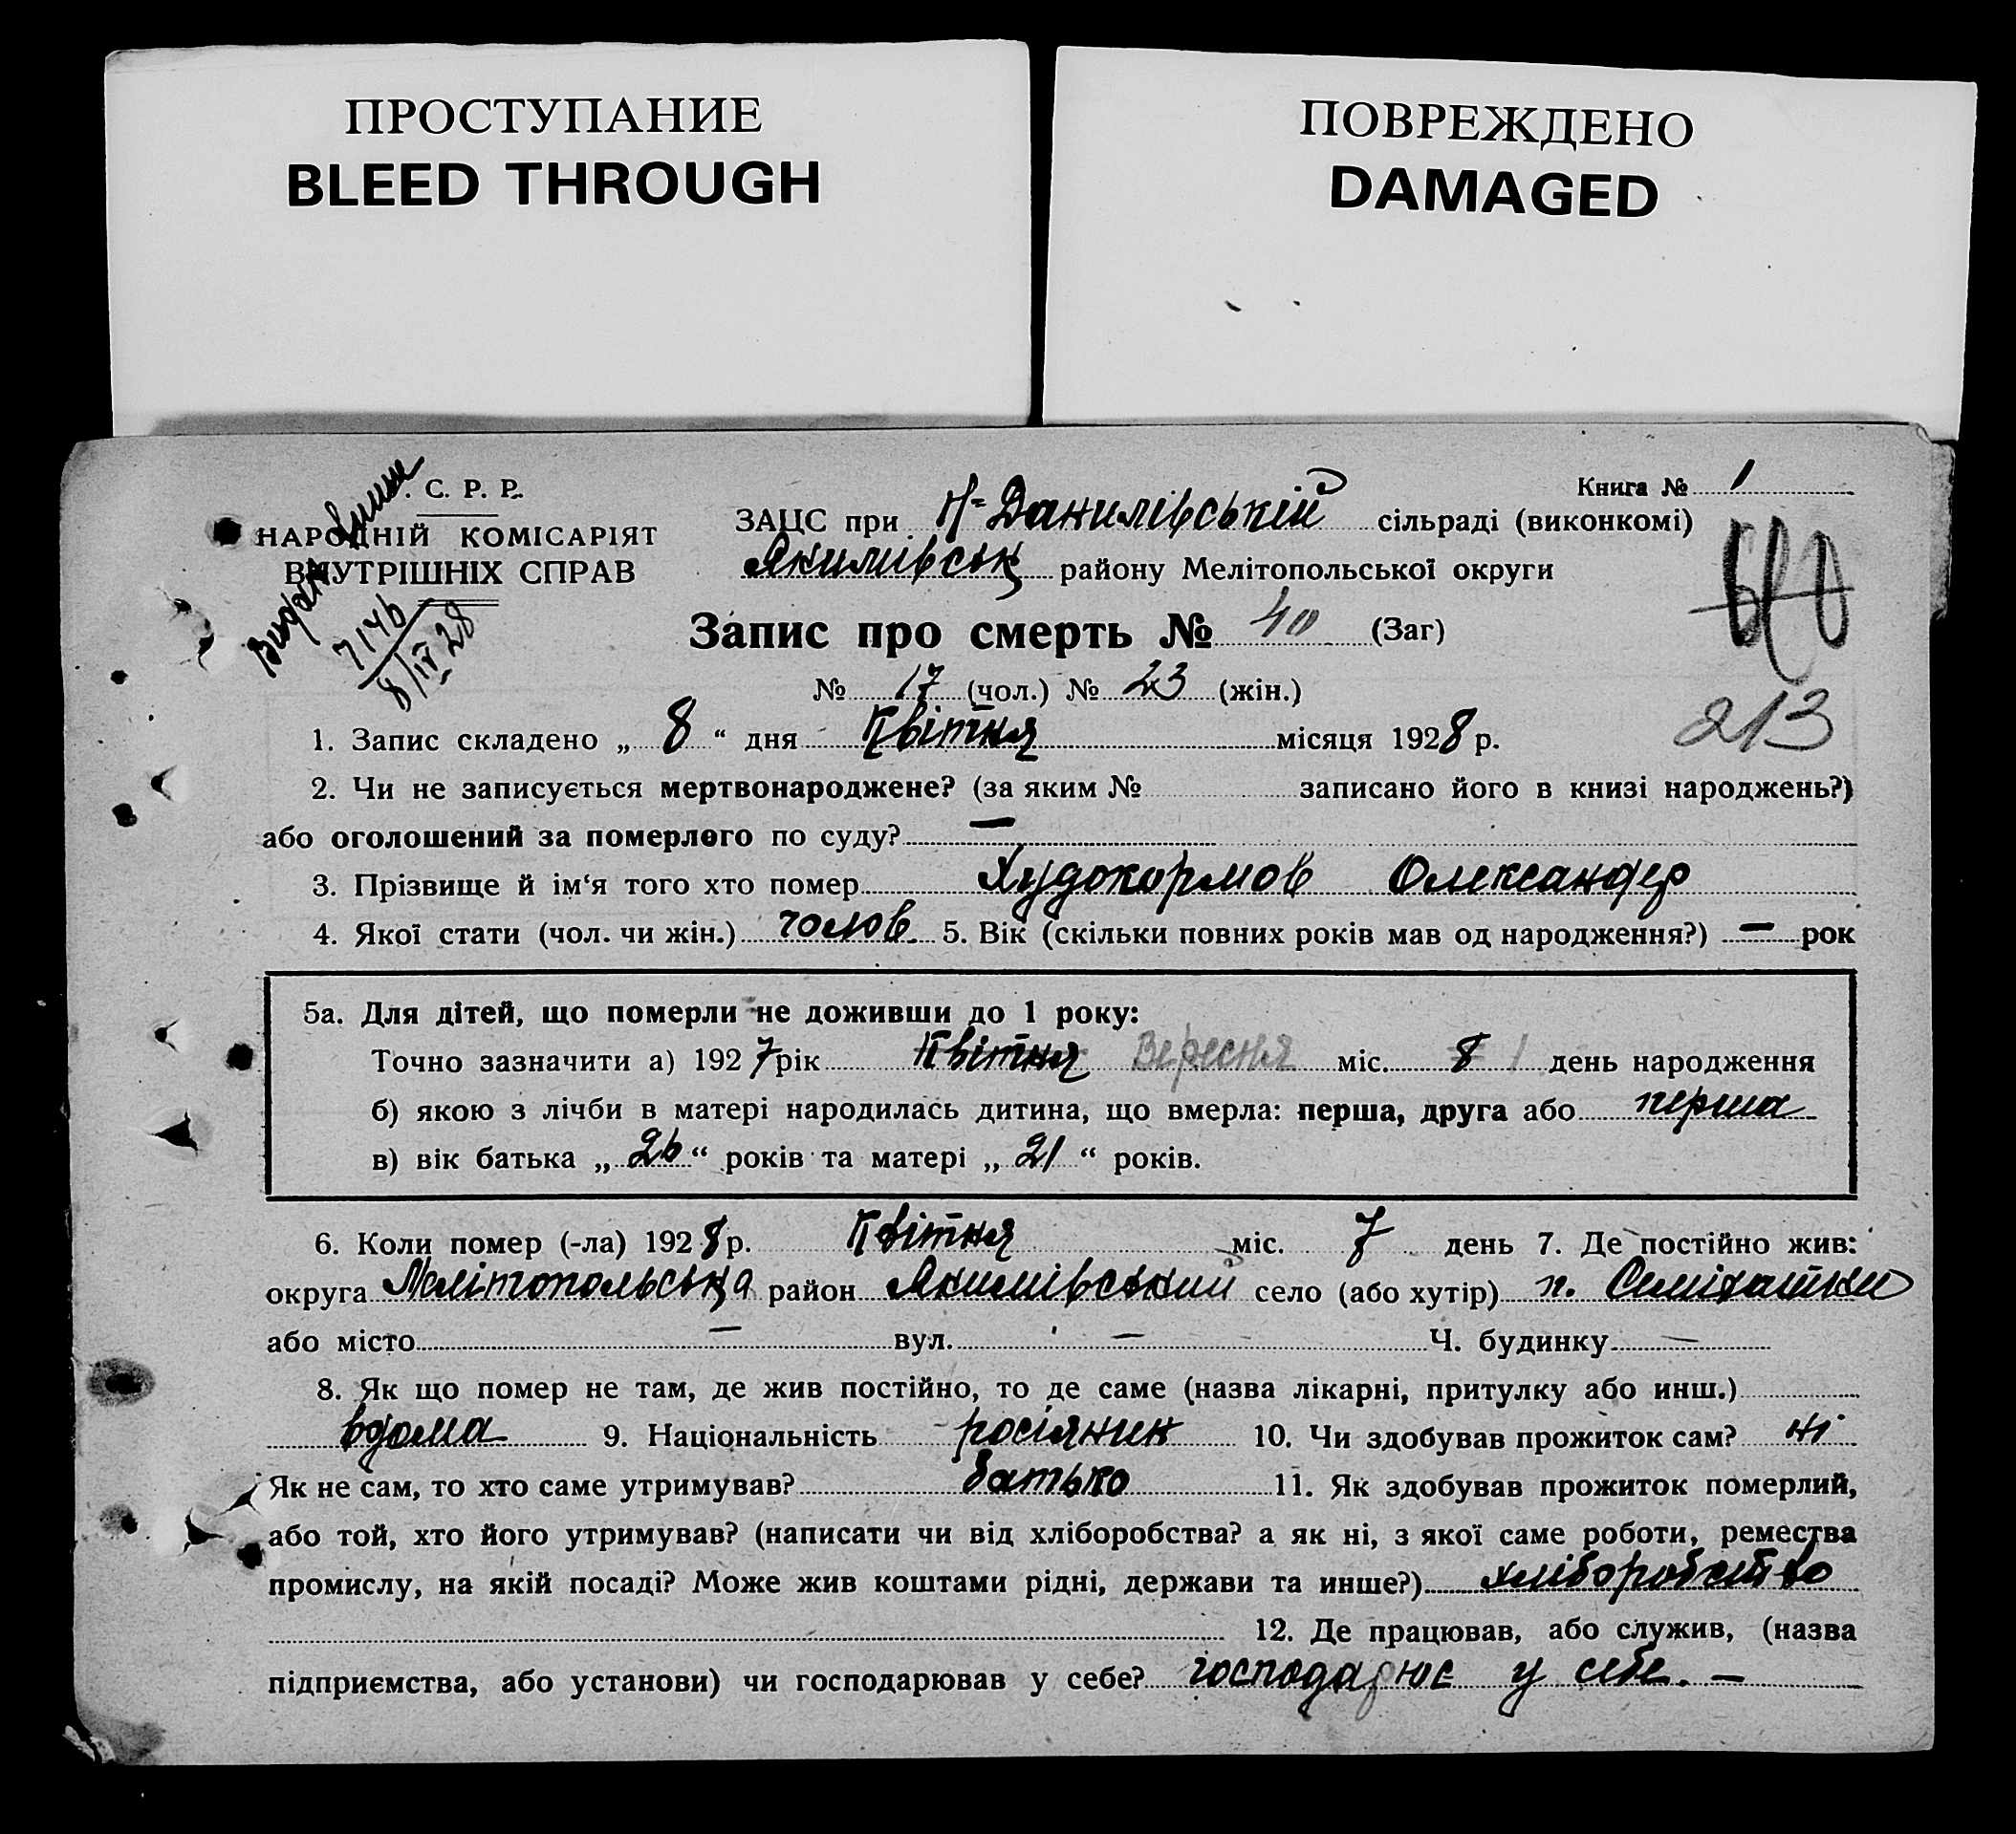 ПРОСТУПАНИЕ
BLEED THROUGH
ПОВРЕЖДЕНО
DAMAGED
. С. Р. Р.
НАРОДНІЙ КОМІСАРІЯТ
ВНУТРІШНІХ СПРАВ
7146
8/IV 28
Книга № 1
ЗАЦС при Н-Данилівській сільраді (виконкомі)
Якимівськ району Мелітопольської округи
Запис про смерть № 40 (Заг)
№ 17 (чол.) № 23 (жін.)
213
1. Запис складено „ 8 “ дня Квітня місяця 1928 р.
2. Чи не записується мертвонароджене? (за яким № записано його в книзі народжень?)
або оголошений за померлого по суду? —
3. Прізвище й ім‘я того хто помер Худокормов Олександер
4. Якої стати (чол. чи жін.) чолов. 5. Вік (скільки повних років мав од народження?) — рок
5а. Для дітей, що померли не доживши до 1 року:
Точно зазначити а) 1927 рік Квітня Вересня міс. 8 1 день народження
б) якою з лічби в матері народилась дитина, що вмерла: перша, друга або перша
в) вік батька „ 26 “ років та матері „ 21 “ років.
6. Коли помер (-ла) 1928 р. Квітня міс. 7 день 7. Де постійно жив:
округа Мелітопольська район Якимівський село (або хутір) п. Семіхатки
або місто — вул. — Ч. будинку —
8. Як що помер не там, де жив постійно, то де саме (назва лікарні, притулку або инш.)
вдома 9. Національність росіянин 10. Чи здобував прожиток сам? ні
Як не сам, то хто саме утримував? батько 11. Як здобував прожиток померлий,
або той, хто його утримував? (написати чи від хліборобства? а як ні, з якої саме роботи, ремества
промислу, на якій посаді? Може жив коштами рідні, держави та инше?) хліборобство
12. Де працював, або служив, (назва
підприємства, або установи) чи господарював у себе? господарює у себе. —